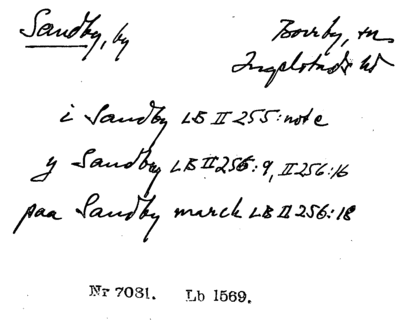 Sandby, by
Borrby, sn
Ingelstads hd
i Sandby LB II 255: note
y Sandby LB II 256: 9, II 256: 16
paa Sandby marck LB II 256: 18
Nr 7031. Lb 1569.